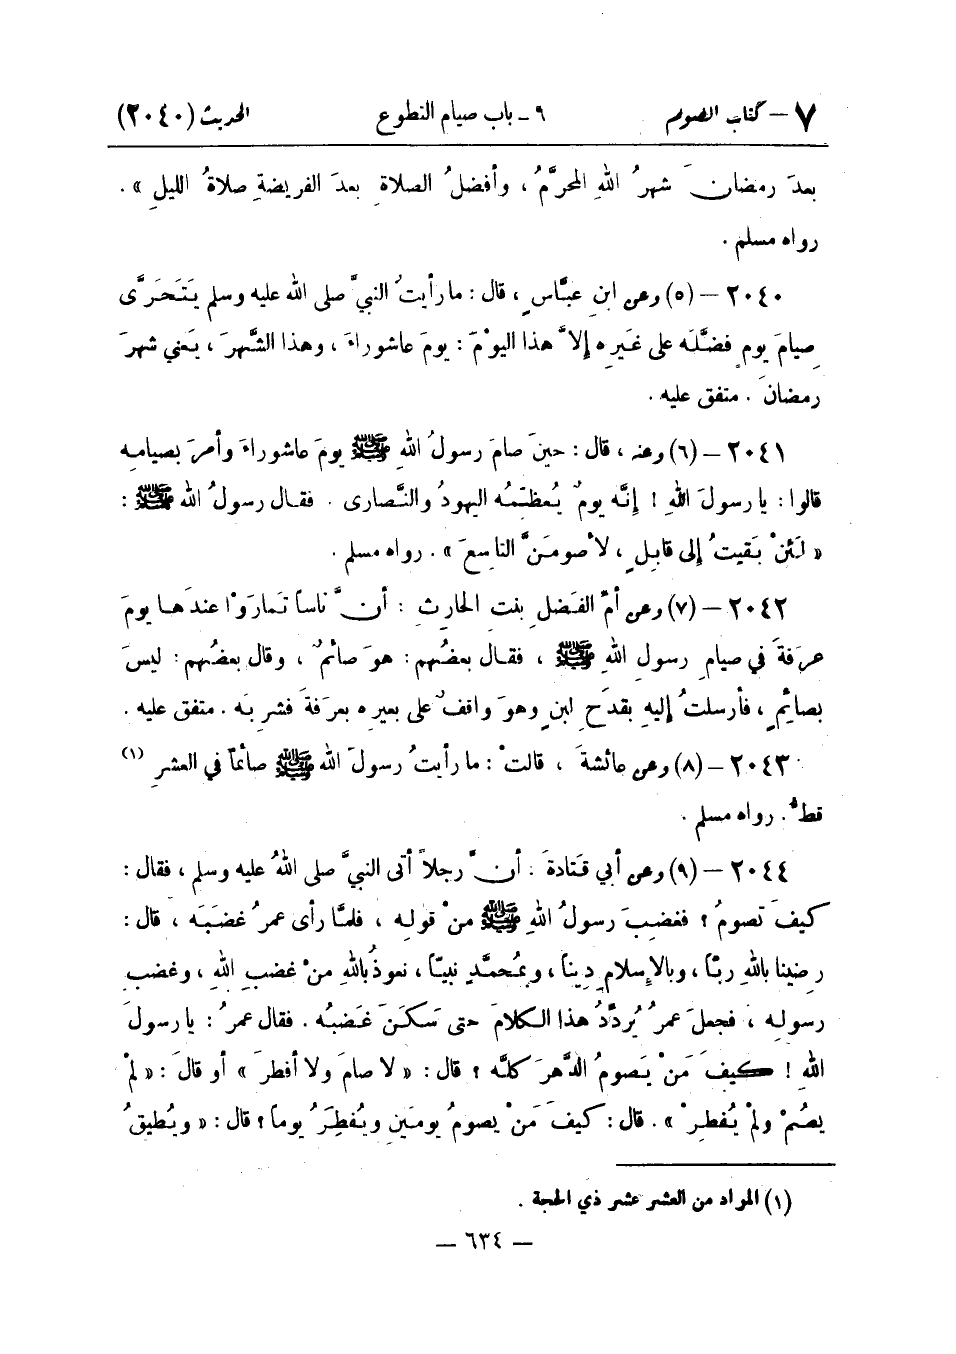 ٧ – كتاب الصوم ٩ - باب صيام التطوع الحديث (٢٠٤٠)
بعدَ رمضانَ شهرُ اللهِ المحرَّمُ ، وأفضلُ الصلاةِ بعدَ الفريضةِ صلاةُ الليلِ » .
رواه مسلم .
٢٠٤٠ – (٥) وعن ابنِ عبَّاسٍ ، قال : ما رأيتُ النبيَّ صلى الله عليه وسلم يَتَحَرَّى
صِيامَ يومٍ فضَّلَه على غَيرِه إلاَّ هذا اليومَ : يومَ عاشوراءَ ، وهذا الشَّهرَ ، يَعني شهرَ
رمضانَ . متفق عليه .
٢٠٤١ – (٦) وعنه ، قال : حينَ صامَ رسولُ اللهِ ﷺ يومَ عاشوراءَ وأمرَ بصيامِه
قالوا : يا رسولَ اللهِ ! إنَّه يومٌ يُعظِّمُه اليهودُ والنَّصارى . فقال رسولُ الله ﷺ :
« لَئنْ بَقيتُ إلى قابلٍ ، لأصومَنَّ التاسعَ » . رواه مسلم .
٢٠٤٢ – (٧) وعن أمِّ الفَضلِ بنتِ الحارِثِ : أنَّ ناساً تَمارَوْا عندَها يومَ
عرفةَ في صيامِ رسولِ اللهِ ﷺ ، فقال بعضُهم : هوَ صائمٌ ، وقال بعضُهم : ليسَ
بصائِمٍ ، فأرسلتُ إليهِ بقدَحِ لبنٍ وهوَ واقفٌ على بعيرِه بعرَفةَ فشرِبَه . متفق عليه .
٢٠٤٣ – (٨) وعن عائشةَ ، قالتْ : ما رأيتُ رسولَ الله ﷺ صائماً في العشرِ (١)
قطُّ . رواه مسلم .
٢٠٤٤ – (٩) وعن أبي قَتادةَ : أنَّ رجلاً أتى النبيَّ صلى اللهُ عليه وسلم ، فقال :
كيفَ تصومُ ؟ فغضِبَ رسولُ اللهِ ﷺ منْ قولِه ، فلمَّا رأى عمرُ غضَبَه ، قال :
رضِينا باللهِ ربّاً ، وبالإسلامِ دِيناً ، وبمُحمَّدٍ نبيّاً ، نعوذُ باللهِ منْ غضبِ اللهِ ، وغضبِ
رسولِه ، فجعلَ عمرُ يُردِّدُ هذا الكلامَ حتى سَكَنَ غَضبُه . فقال عمرُ : يا رسولَ
اللهِ ! كيفَ مَنْ يَصومُ الدَّهرَ كلَّه ؟ قال : « لا صامَ ولا أفطرَ » أو قالَ : « لمْ
يصُمْ ولمْ يُفطِرْ » . قال : كيفَ مَنْ يصومُ يومَينِ ويُفطِرُ يوماً ؟ قال : « ويُطيقُ
(١) المراد من العشر عشر ذي الحجة .
– ٦٣٤ –